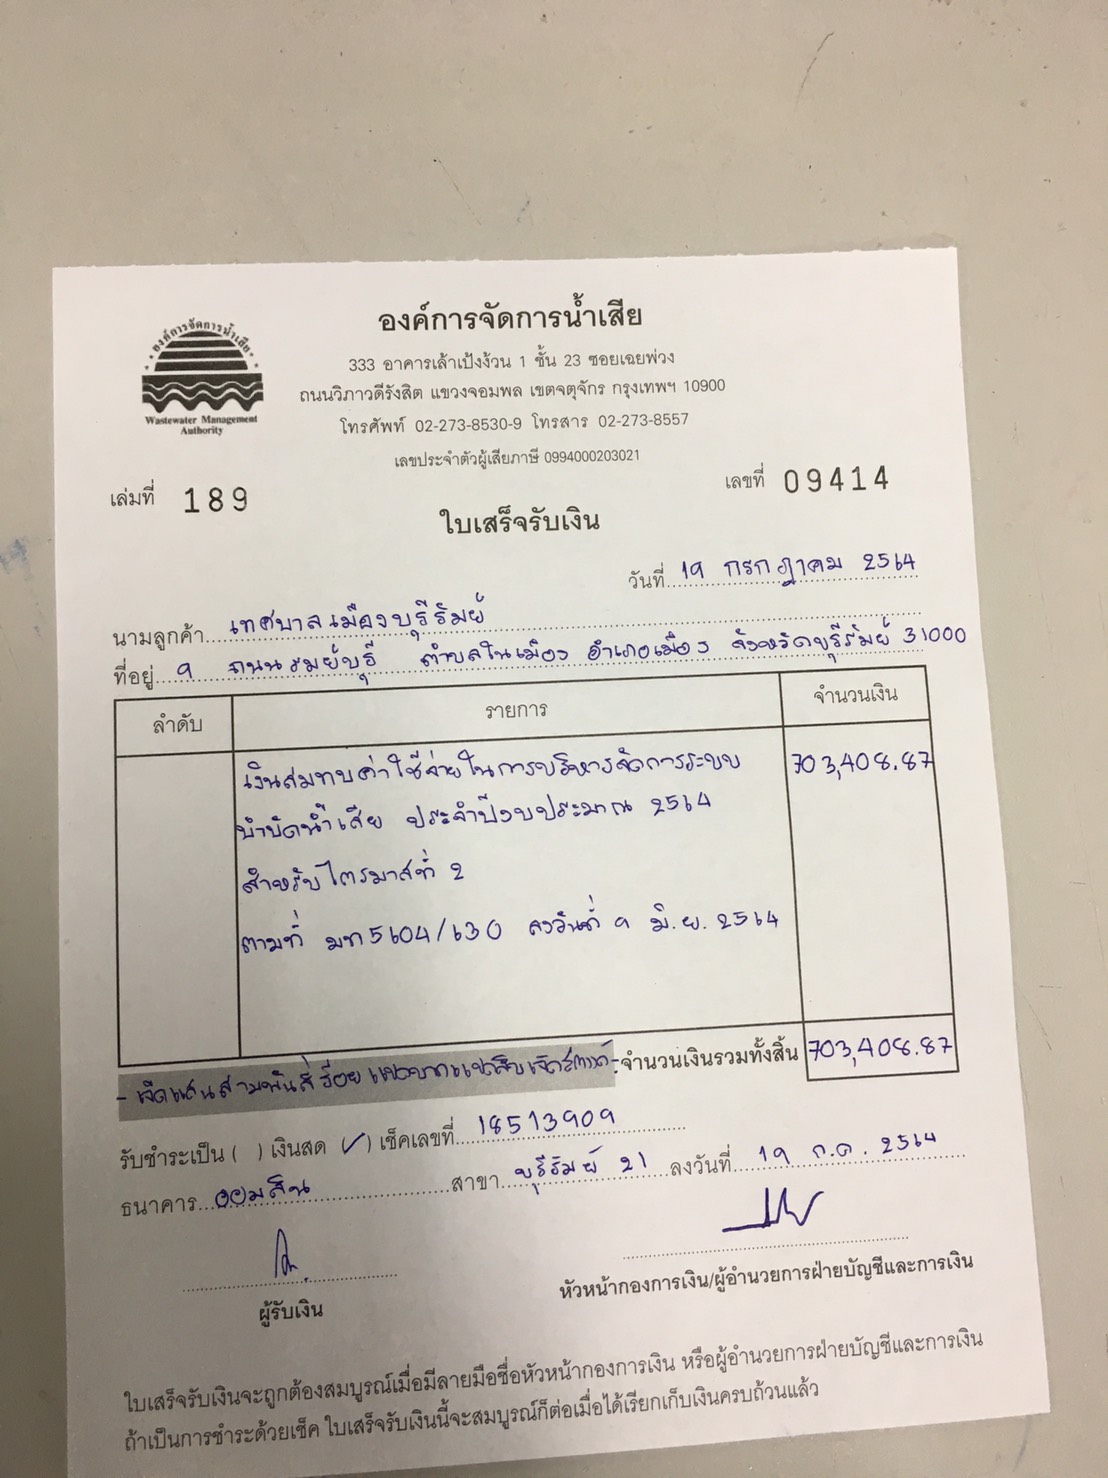 องค์การจัดการน้ำเสีย
333 อาคารเล้าเป้งง้วน 1 ชั้น 23 ซอยเฉยพ่วง
ถนนวิภาวดีรังสิต แขวงจอมพล เขตจตุจักร กรุงเทพฯ 10900
โทรศัพท์ 02-273-8530-9 โทรสาร 02-273-8557
เลขประจำตัวผู้เสียภาษี 0994000203021
องค์การจัดการน้ำเสีย
Wastewater Management
Authority
เล่มที่ 189
เลขที่ 09414
ใบเสร็จรับเงิน
วันที่ 19 กรกฎาคม 2564
นามลูกค้า เทศบาลเมืองบุรีรัมย์
ที่อยู่ 9 ถนนรมย์บุรี ตำบลในเมือง อำเภอเมือง จังหวัดบุรีรัมย์ 31000
ลำดับ รายการ จำนวนเงิน
เงินสมทบค่าใช้จ่ายในการบริหารจัดการระบบ 703,408.87
บำบัดน้ำเสีย ประจำปีงบประมาณ 2564
สำหรับไตรมาสที่ 2
ตามที่ มท5604/630 ลงวันที่ 9 มิ.ย. 2564
- เจ็ดแสนสามพันสี่ร้อยแปดบาทแปดสิบเจ็ดสตางค์ - จำนวนเงินรวมทั้งสิ้น 703,408.87
รับชำระเป็น ( ) เงินสด (✓) เช็คเลขที่ 18513909
ธนาคาร ออมสิน สาขา บุรีรัมย์ 21 ลงวันที่ 19 ก.ค. 2564
ผู้รับเงิน
หัวหน้ากองการเงิน/ผู้อำนวยการฝ่ายบัญชีและการเงิน
ใบเสร็จรับเงินจะถูกต้องสมบูรณ์เมื่อมีลายมือชื่อหัวหน้ากองการเงิน หรือผู้อำนวยการฝ่ายบัญชีและการเงิน
ถ้าเป็นการชำระด้วยเช็ค ใบเสร็จรับเงินนี้จะสมบูรณ์ก็ต่อเมื่อได้เรียกเก็บเงินครบถ้วนแล้ว